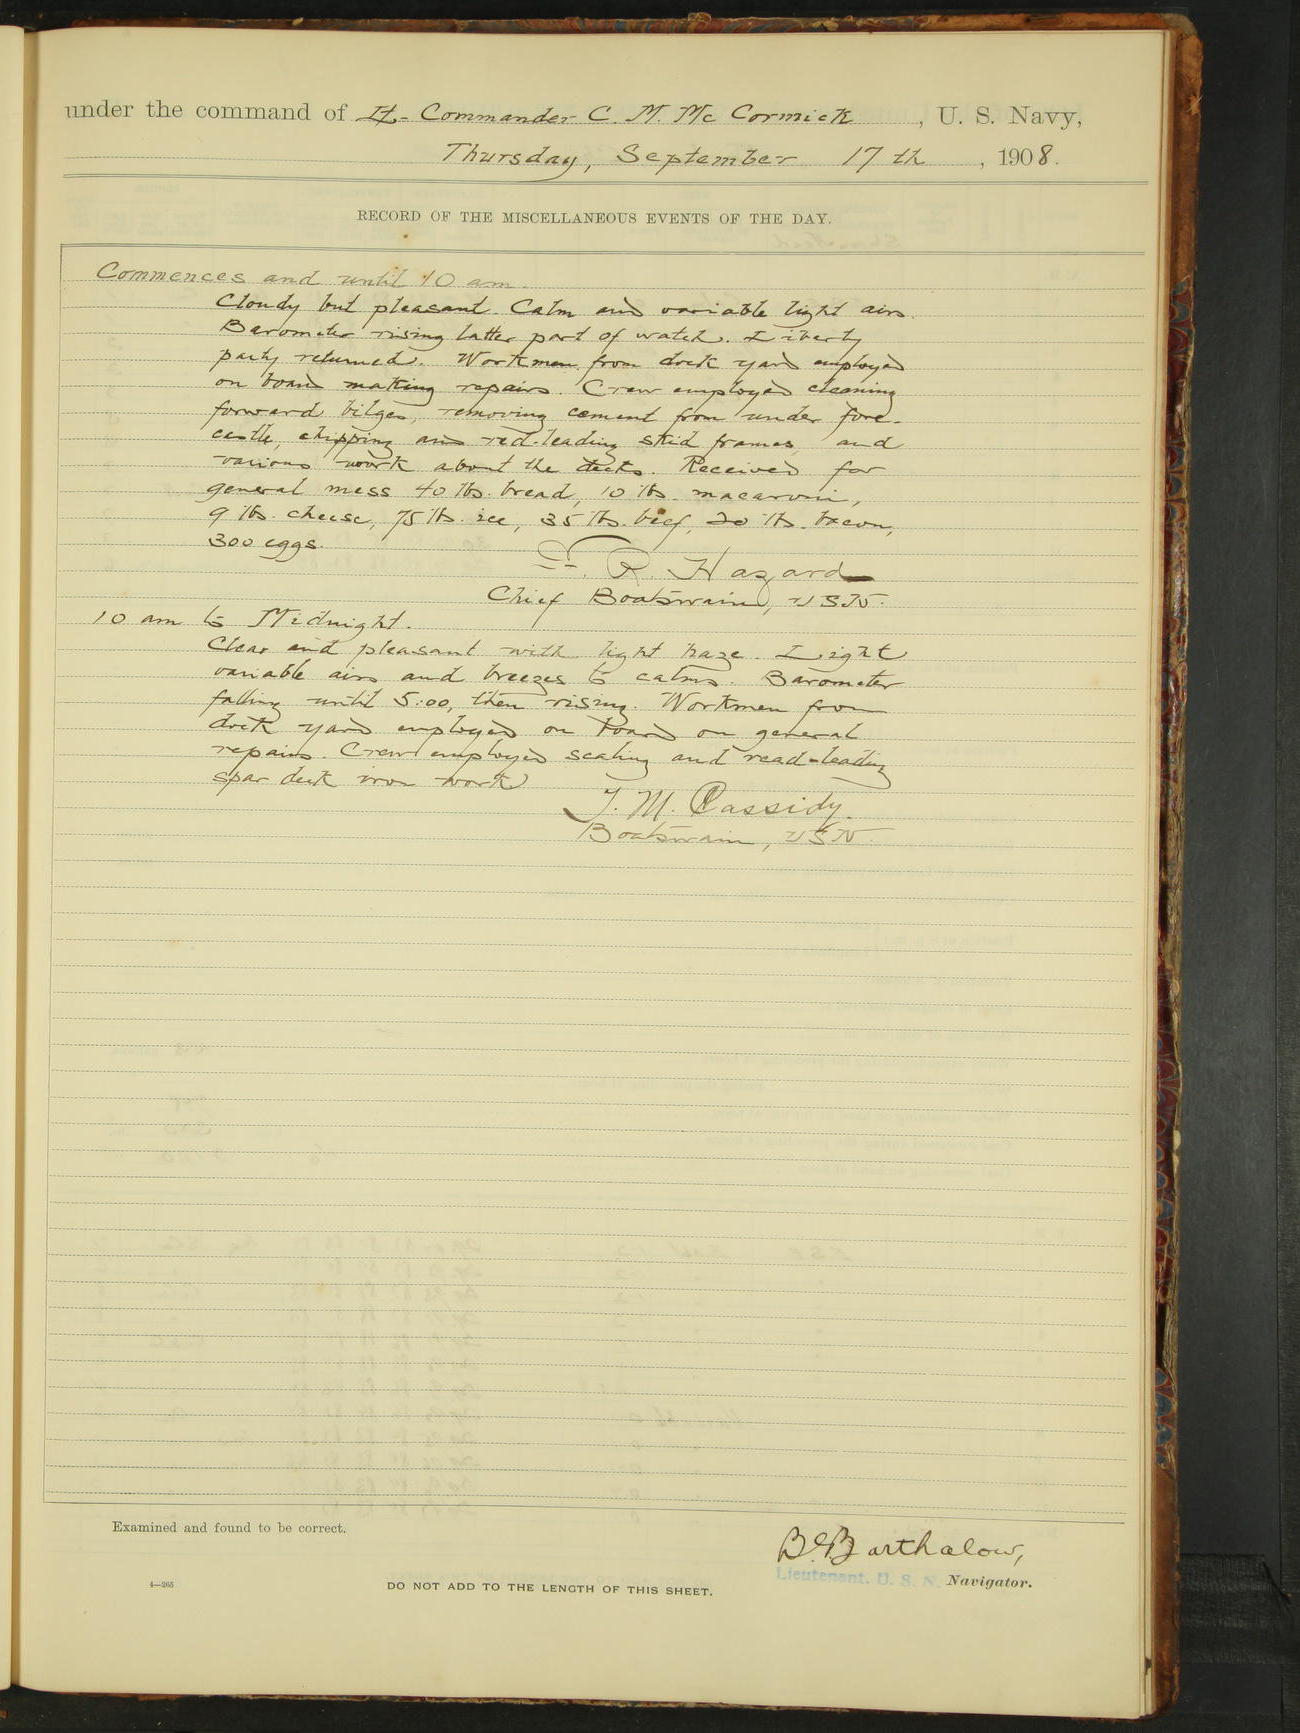 under the command of Lt- Commander C. M. McCormick, U. S. Navy,
Thursday, September 17th, 1908.
RECORD OF THE MISCELLANEOUS EVENTS OF THE DAY.
Commences and until 10 am.
Cloudy but pleasant. Calm and variable light airs.
Barometer rising latter part of watch. Liberty
party returned. Workmen from dock yard employed
on board making repairs. Crew employed cleaning
forward bilges, removing cement from under fore-
castle, chipping and red-leading skid frames, and
various work about the decks. Received for
general mess 40 lbs. bread, 10 lbs. macaroni,
9 lbs. cheese, 75 lbs. ice, 35 lbs. beef, 20 lbs. bacon,
300 eggs.
R. Hazard
Chief Boatswain, USN.
10 am to Midnight.
Clear and pleasant with light haze. Light
variable airs and breezes to calms. Barometer
falling until 5:00, then rising. Workmen from
dock yard employed on board on general
repairs. Crew employed scaling and read-leading
spar deck iron work
T. M. Cassidy.
Boatswain, USN.
Examined and found to be correct.
Barthalow,
Lieutenant, U. S. N. Navigator.
4—265
DO NOT ADD TO THE LENGTH OF THIS SHEET.